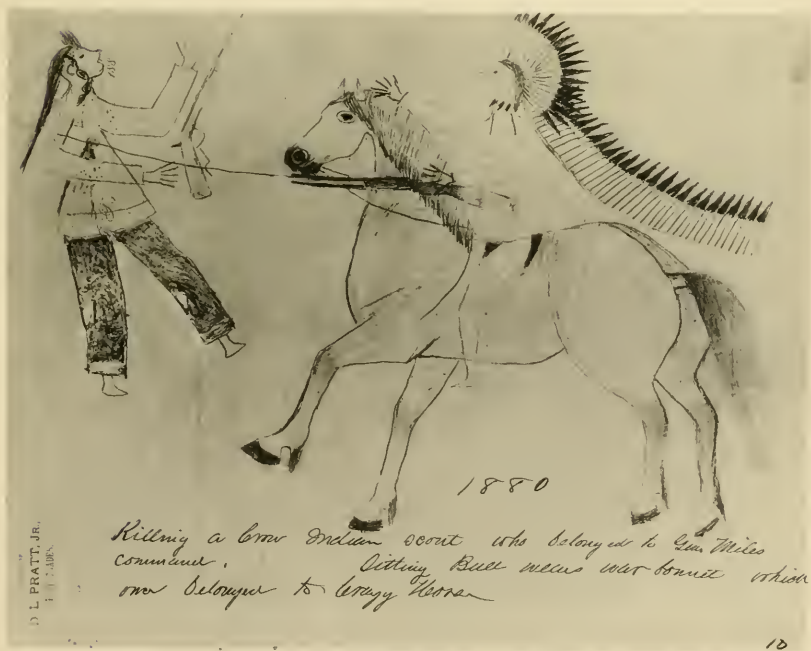 1880
Killing a Crow Indian scout who belonged to Gen Miles
command. Sitting Bull wears war bonnet which
once belonged to Crazy Horse
D L PRATT, JR.
10